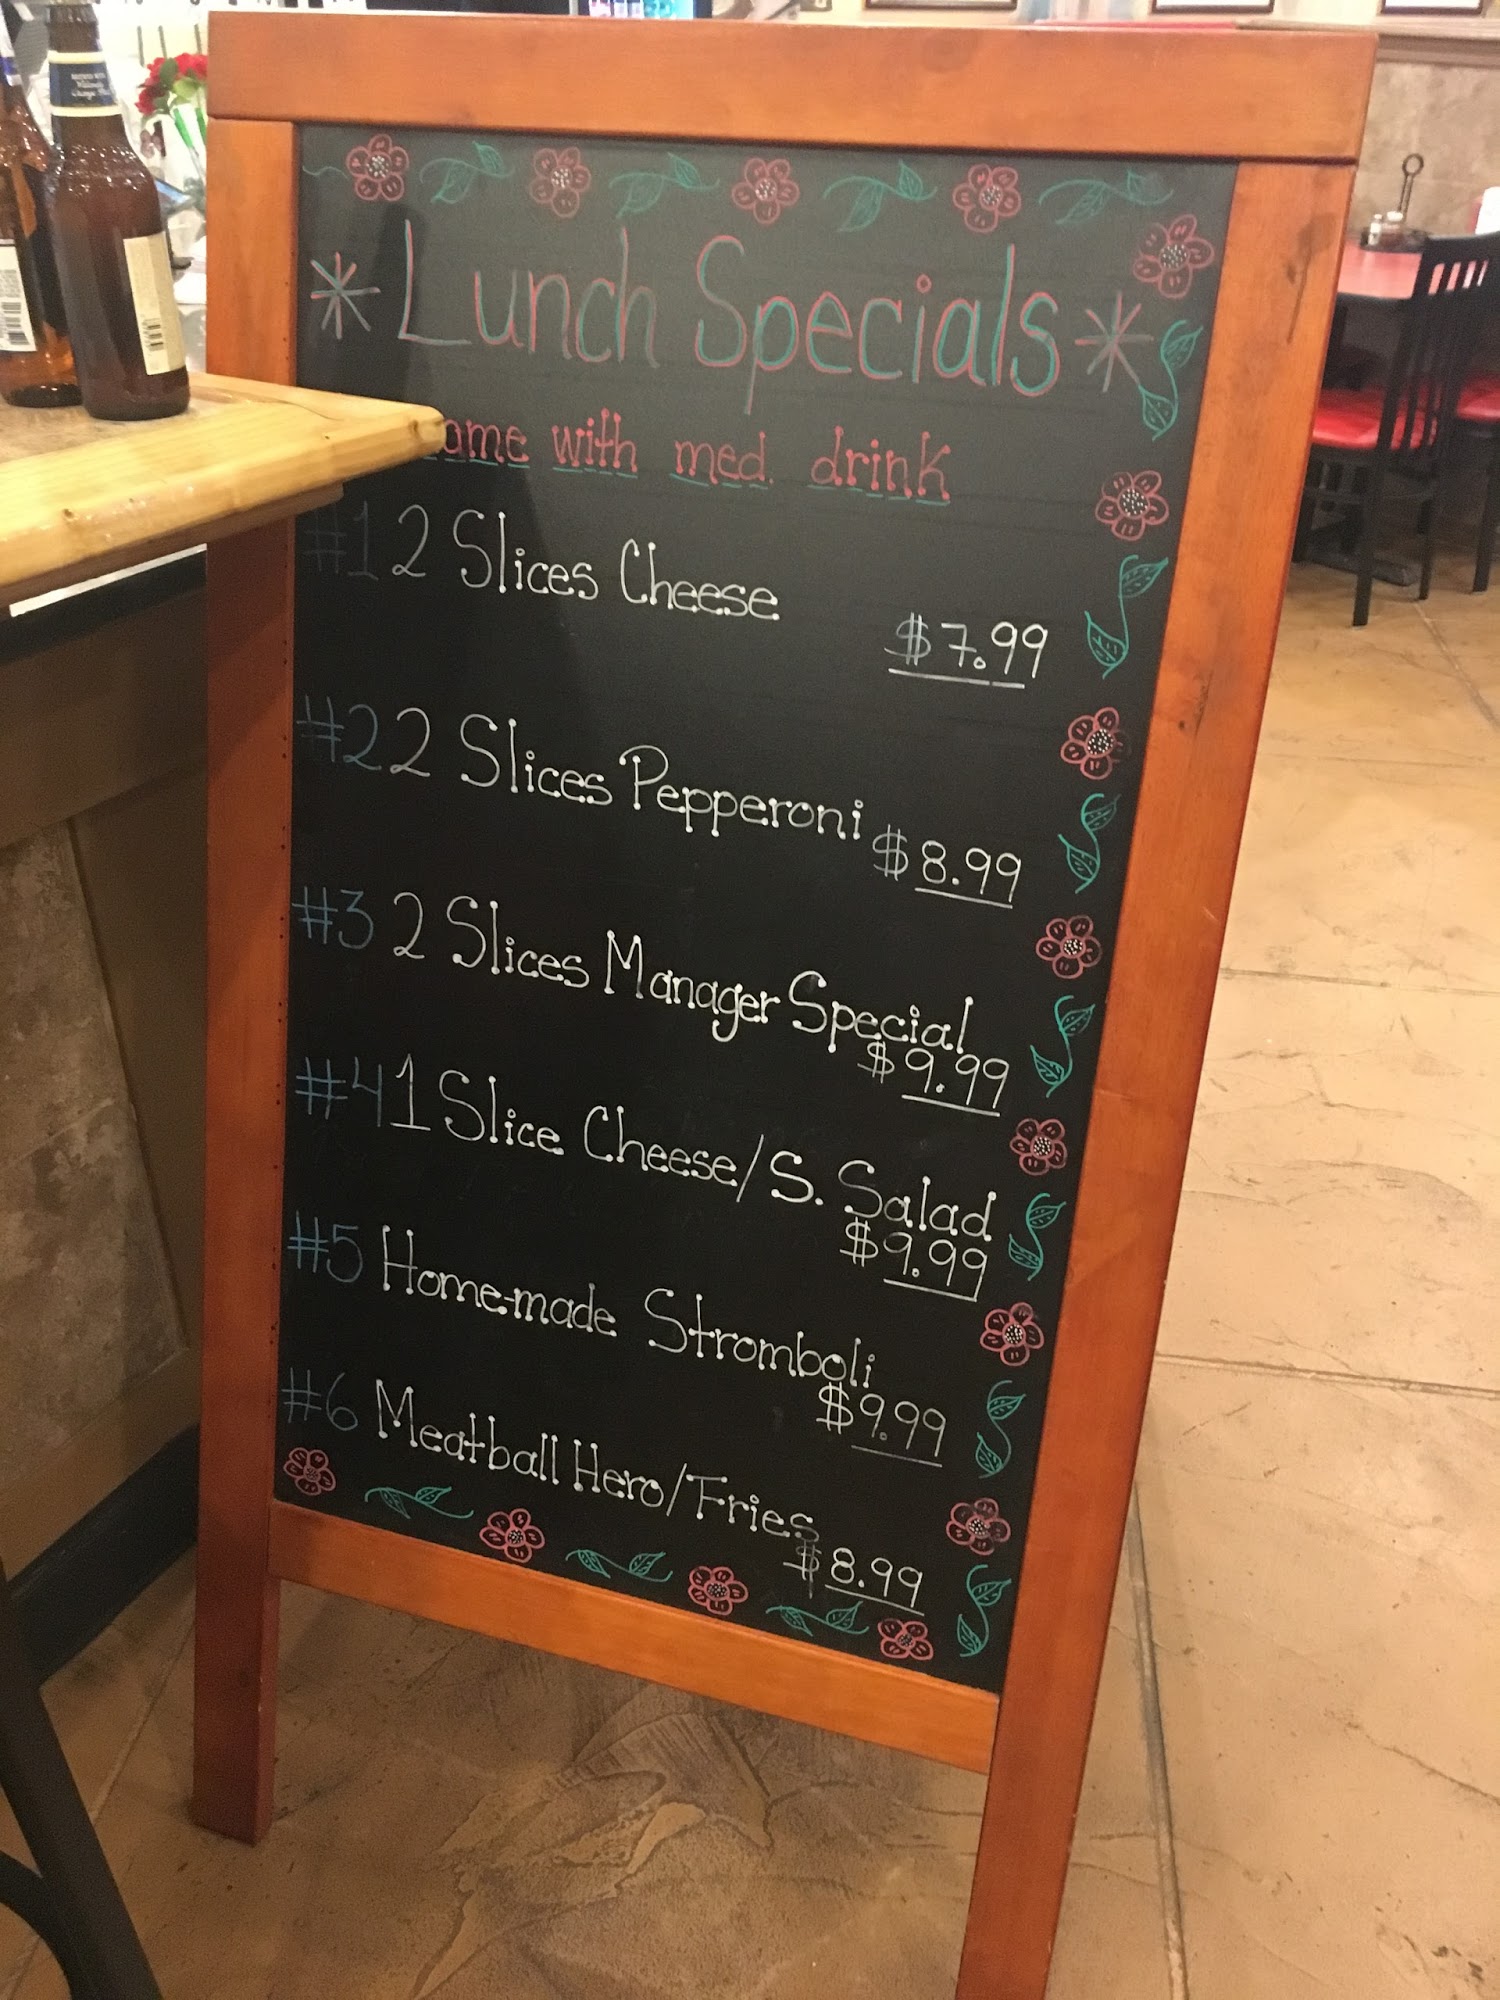 * Lunch Specials *
ame with med. drink
#1 2 Slices Cheese
$7.99
#2 2 Slices Pepperoni
$8.99
#3 2 Slices Manager Special
$9.99
#4 1 Slice Cheese/S. Salad
$9.99
#5 Home-made Stromboli
$9.99
#6 Meatball Hero/Fries
$8.99